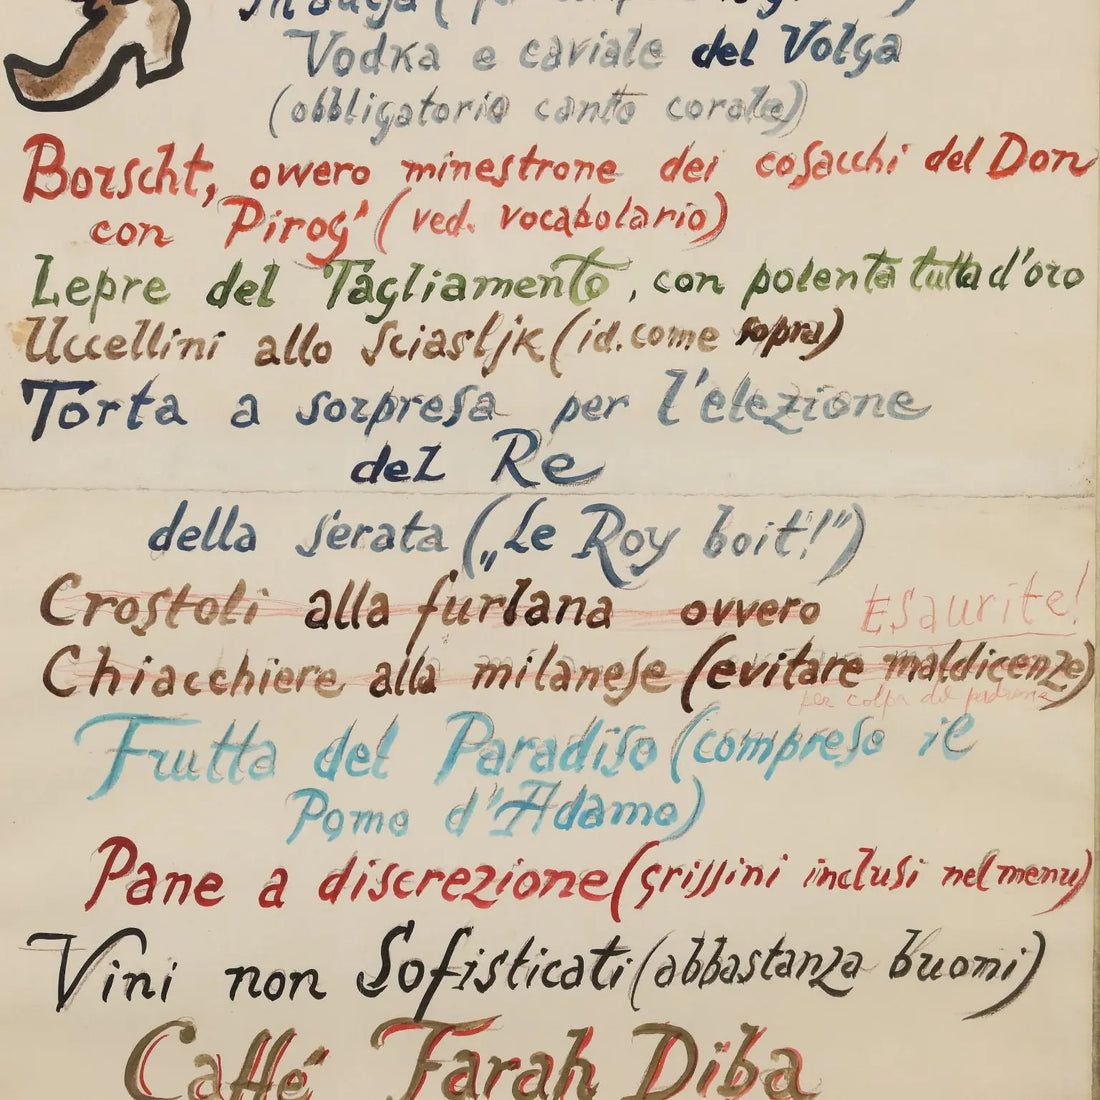 Vodka e caviale del Volga
(obbligatorio canto corale)
Borscht, ovvero minestrone dei cosacchi del Don
con Pirog' (ved. vocabolario)
Lepre del Tagliamento, con polenta tutta d'oro
Uccellini allo Sciasljk (id. come sopra)
Torta a sorpresa per l'elezione
del Re
della serata („Le Roy boit!")
Crostoli alla furlana ovvero Esaurite!
Chiacchiere alla milanese (evitare maldicenze)
per colpa del padrone
Frutta del Paradiso (compreso il
Pomo d'Adamo)
Pane a discrezione (grissini inclusi nel menu)
Vini non Sofisticati (abbastanza buoni)
Caffé Farah Diba